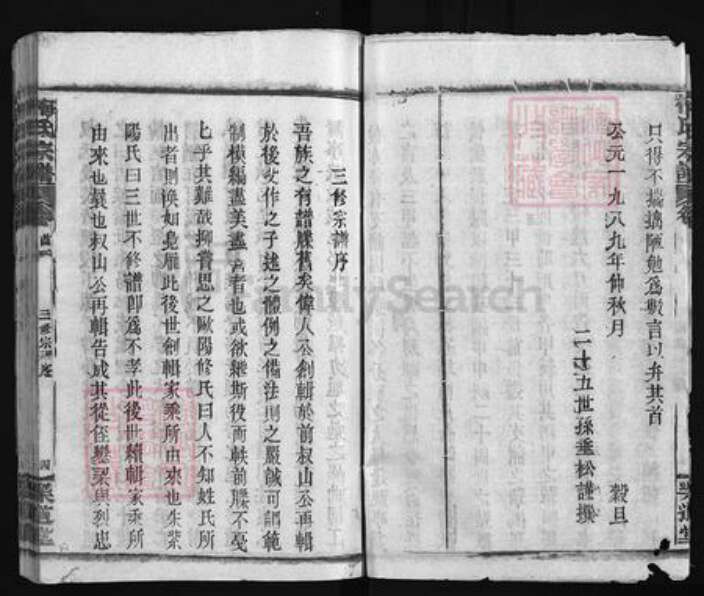 只得不揣譾陋勉為數言以弁其首
公元一九八九年仲秋月 穀旦
二十五世孫垂松謹撰
三修宗譜序
吾族之有譜牒舊矣偉人公創輯於前叔山公再輯
於後父作之子述之體例之備法則之嚴誠可謂範
制模編盡美盡善者也或欲繼斯役而軼前牒不憂
乎其難哉抑嘗思之歐陽修氏曰人不知姓氏所
出者則倏如鳧雁此後世創輯家乘所由來也朱紫
陽氏曰三世不修譜即為不孝此後世續輯家乘所
由來也曩也叔山公再輯告成其從侄懋梁與列忠
氏宗譜
卷首
三修宗譜序
四
樂道堂
FamilySearch